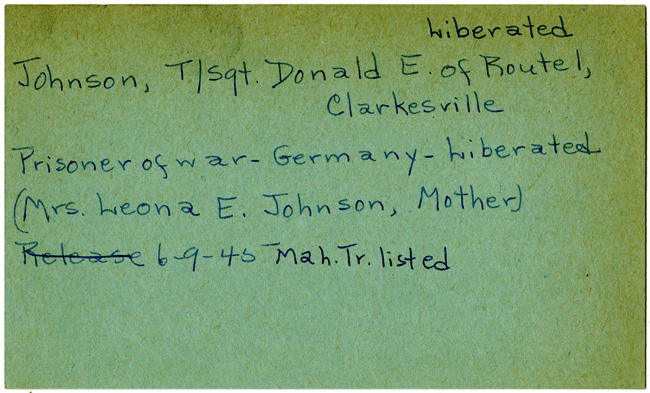 Liberated
Johnson, T/Sgt. Donald E. of Route 1,
Clarkesville
Prisoner of war - Germany - Liberated
(Mrs. Leona E. Johnson, Mother)
Release 6-9-45 Mah. Tr. listed